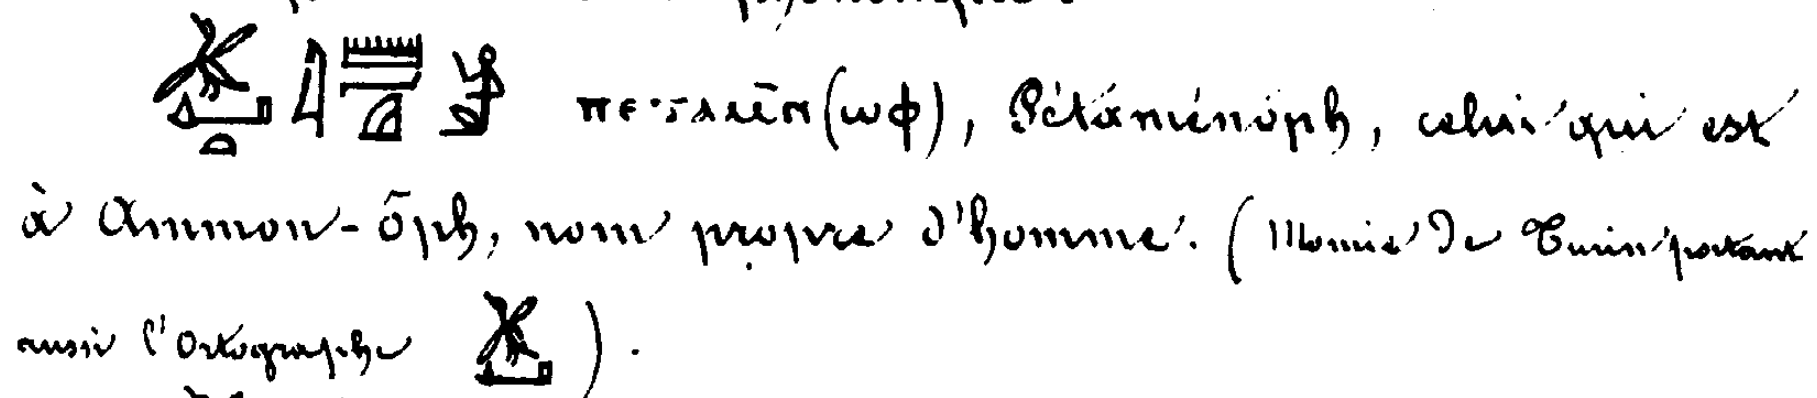 ⲡⲉⲧⲁⲙⲉ̄ⲛ(ⲱⲫ), Pétaménôph, celui qui est
à Ammon-ôph, nom propre d'homme. (Momie de Turin portant
aussi l'Ortographe 𓅮𓂞).